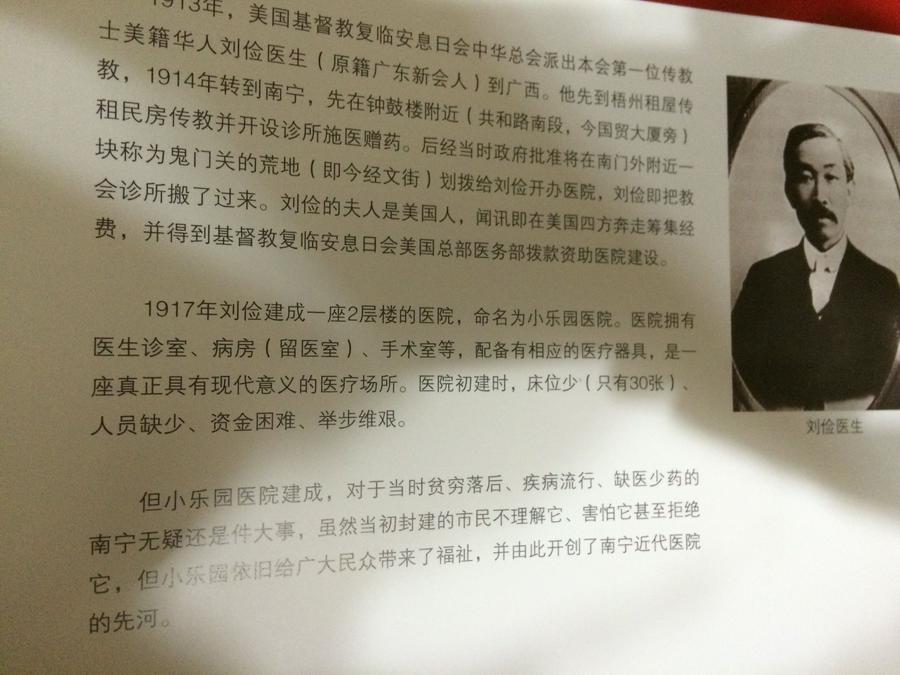 1913年，美国基督教复临安息日会中华总会派出本会第一位传教
士美籍华人刘俭医生（原籍广东新会人）到广西。他先到梧州租屋传
教，1914年转到南宁，先在钟鼓楼附近（共和路南段，今国贸大厦旁）
租民房传教并开设诊所施医赠药。后经当时政府批准将在南门外附近一
块称为鬼门关的荒地（即今经文街）划拨给刘俭开办医院，刘俭即把教
会诊所搬了过来。刘俭的夫人是美国人，闻讯即在美国四方奔走筹集经
费，并得到基督教复临安息日会美国总部医务部拨款资助医院建设。
1917年刘俭建成一座2层楼的医院，命名为小乐园医院。医院拥有
医生诊室、病房（留医室）、手术室等，配备有相应的医疗器具，是一
座真正具有现代意义的医疗场所。医院初建时，床位少（只有30张）、
人员缺少、资金困难、举步维艰。
但小乐园医院建成，对于当时贫穷落后、疾病流行、缺医少药的
南宁无疑还是件大事，虽然当初封建的市民不理解它、害怕它甚至拒绝
它，但小乐园依旧给广大民众带来了福祉，并由此开创了南宁近代医院
的先河。
刘俭医生